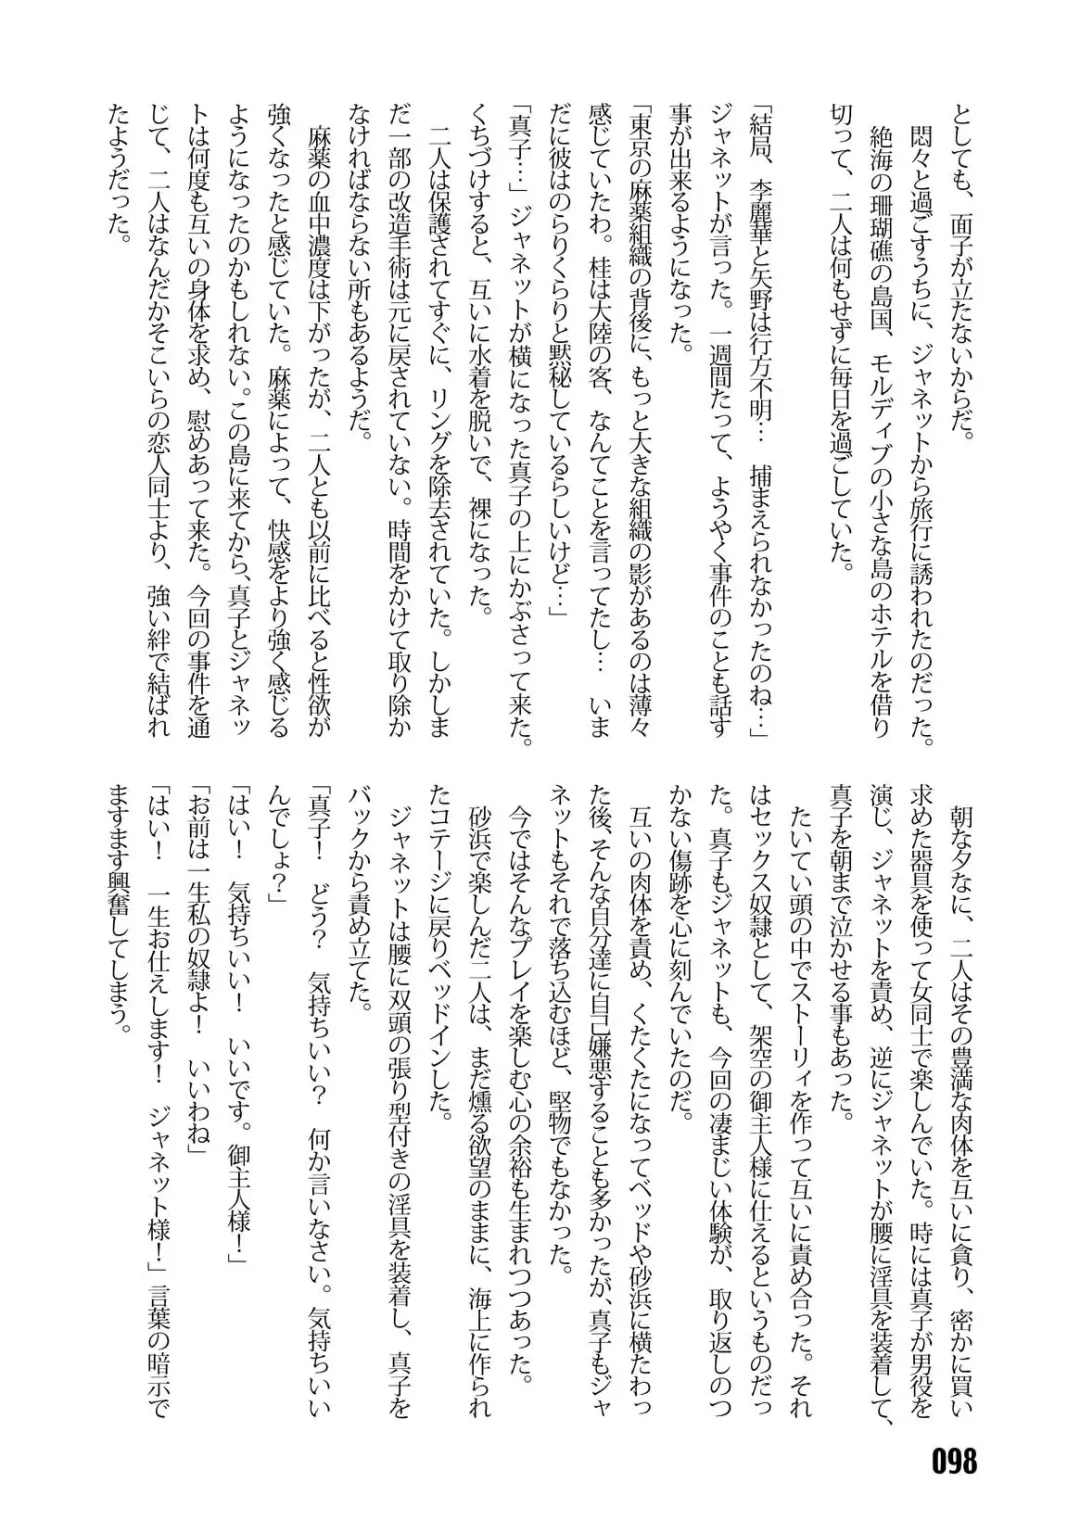 としても、面子が立たないからだ。
悶々と過ごすうちに、ジャネットから旅行に誘われたのだった。
絶海の珊瑚礁の島国、モルディブの小さな島のホテルを借り
切って、二人は何もせずに毎日を過ごしていた。
「結局、李麗華と矢野は行方不明… 捕まえられなかったのね…」
ジャネットが言った。一週間たって、ようやく事件のことも話す
事が出来るようになった。
「東京の麻薬組織の背後に、もっと大きな組織の影があるのは薄々
感じていたわ。桂は大陸の客、なんてことを言ってたし… いま
だに彼はのらりくらりと黙秘しているらしいけど…」
「真子…」ジャネットが横になった真子の上にかぶさって来た。
くちづけすると、互いに水着を脱いで、裸になった。
二人は保護されてすぐに、リングを除去されていた。しかしま
だ一部の改造手術は元に戻されていない。時間をかけて取り除か
なければならない所もあるようだ。
麻薬の血中濃度は下がったが、二人とも以前に比べると性欲が
強くなったと感じていた。麻薬によって、快感をより強く感じる
ようになったのかもしれない。この島に来てから、真子とジャネッ
トは何度も互いの身体を求め、慰めあって来た。今回の事件を通
じて、二人はなんだかそこいらの恋人同士より、強い絆で結ばれ
たようだった。
朝な夕なに、二人はその豊満な肉体を互いに貪り、密かに買い
求めた器具を使って女同士で楽しんでいた。時には真子が男役を
演じ、ジャネットを責め、逆にジャネットが腰に淫具を装着して、
真子を朝まで泣かせる事もあった。
たいてい頭の中でストーリィを作って互いに責め合った。それ
はセックス奴隷として、架空の御主人様に仕えるというものだっ
た。真子もジャネットも、今回の凄まじい体験が、取り返しのつ
かない傷跡を心に刻んでいたのだ。
互いの肉体を責め、くたくたになってベッドや砂浜に横たわっ
た後、そんな自分達に自己嫌悪することも多かったが、真子もジャ
ネットもそれで落ち込むほど、堅物でもなかった。
今ではそんなプレイを楽しむ心の余裕も生まれつつあった。
砂浜で楽しんだ二人は、まだ燻る欲望のままに、海上に作られ
たコテージに戻りベッドインした。
ジャネットは腰に双頭の張り型付きの淫具を装着し、真子を
バックから責め立てた。
「真子! どう? 気持ちいい? 何か言いなさい。気持ちいい
んでしょ?」
「はい! 気持ちいい! いいです。御主人様!」
「お前は一生私の奴隷よ! いいわね」
「はい! 一生お仕えします! ジャネット様!」言葉の暗示で
ますます興奮してしまう。
098